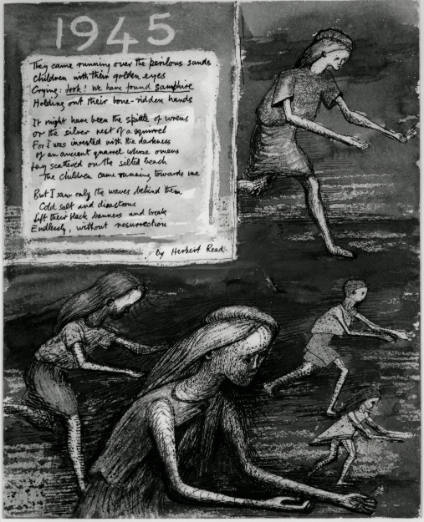 1945
They came running over the perilous sands
Children with their golden eyes
Crying: Look! We have found samphire
Holding out their bone-ridden hands
It might have been the spittle of wrens
Or the silver nest of a squirrel
For I was invested with the darkness
of an ancient quarrel whose omens
lay scattered on the silted beach
The children came running towards me
But I saw only the waves behind them
Cold salt and disastrous
Lift their black banners and break
Endlessly, without resurrection
by Herbert Read